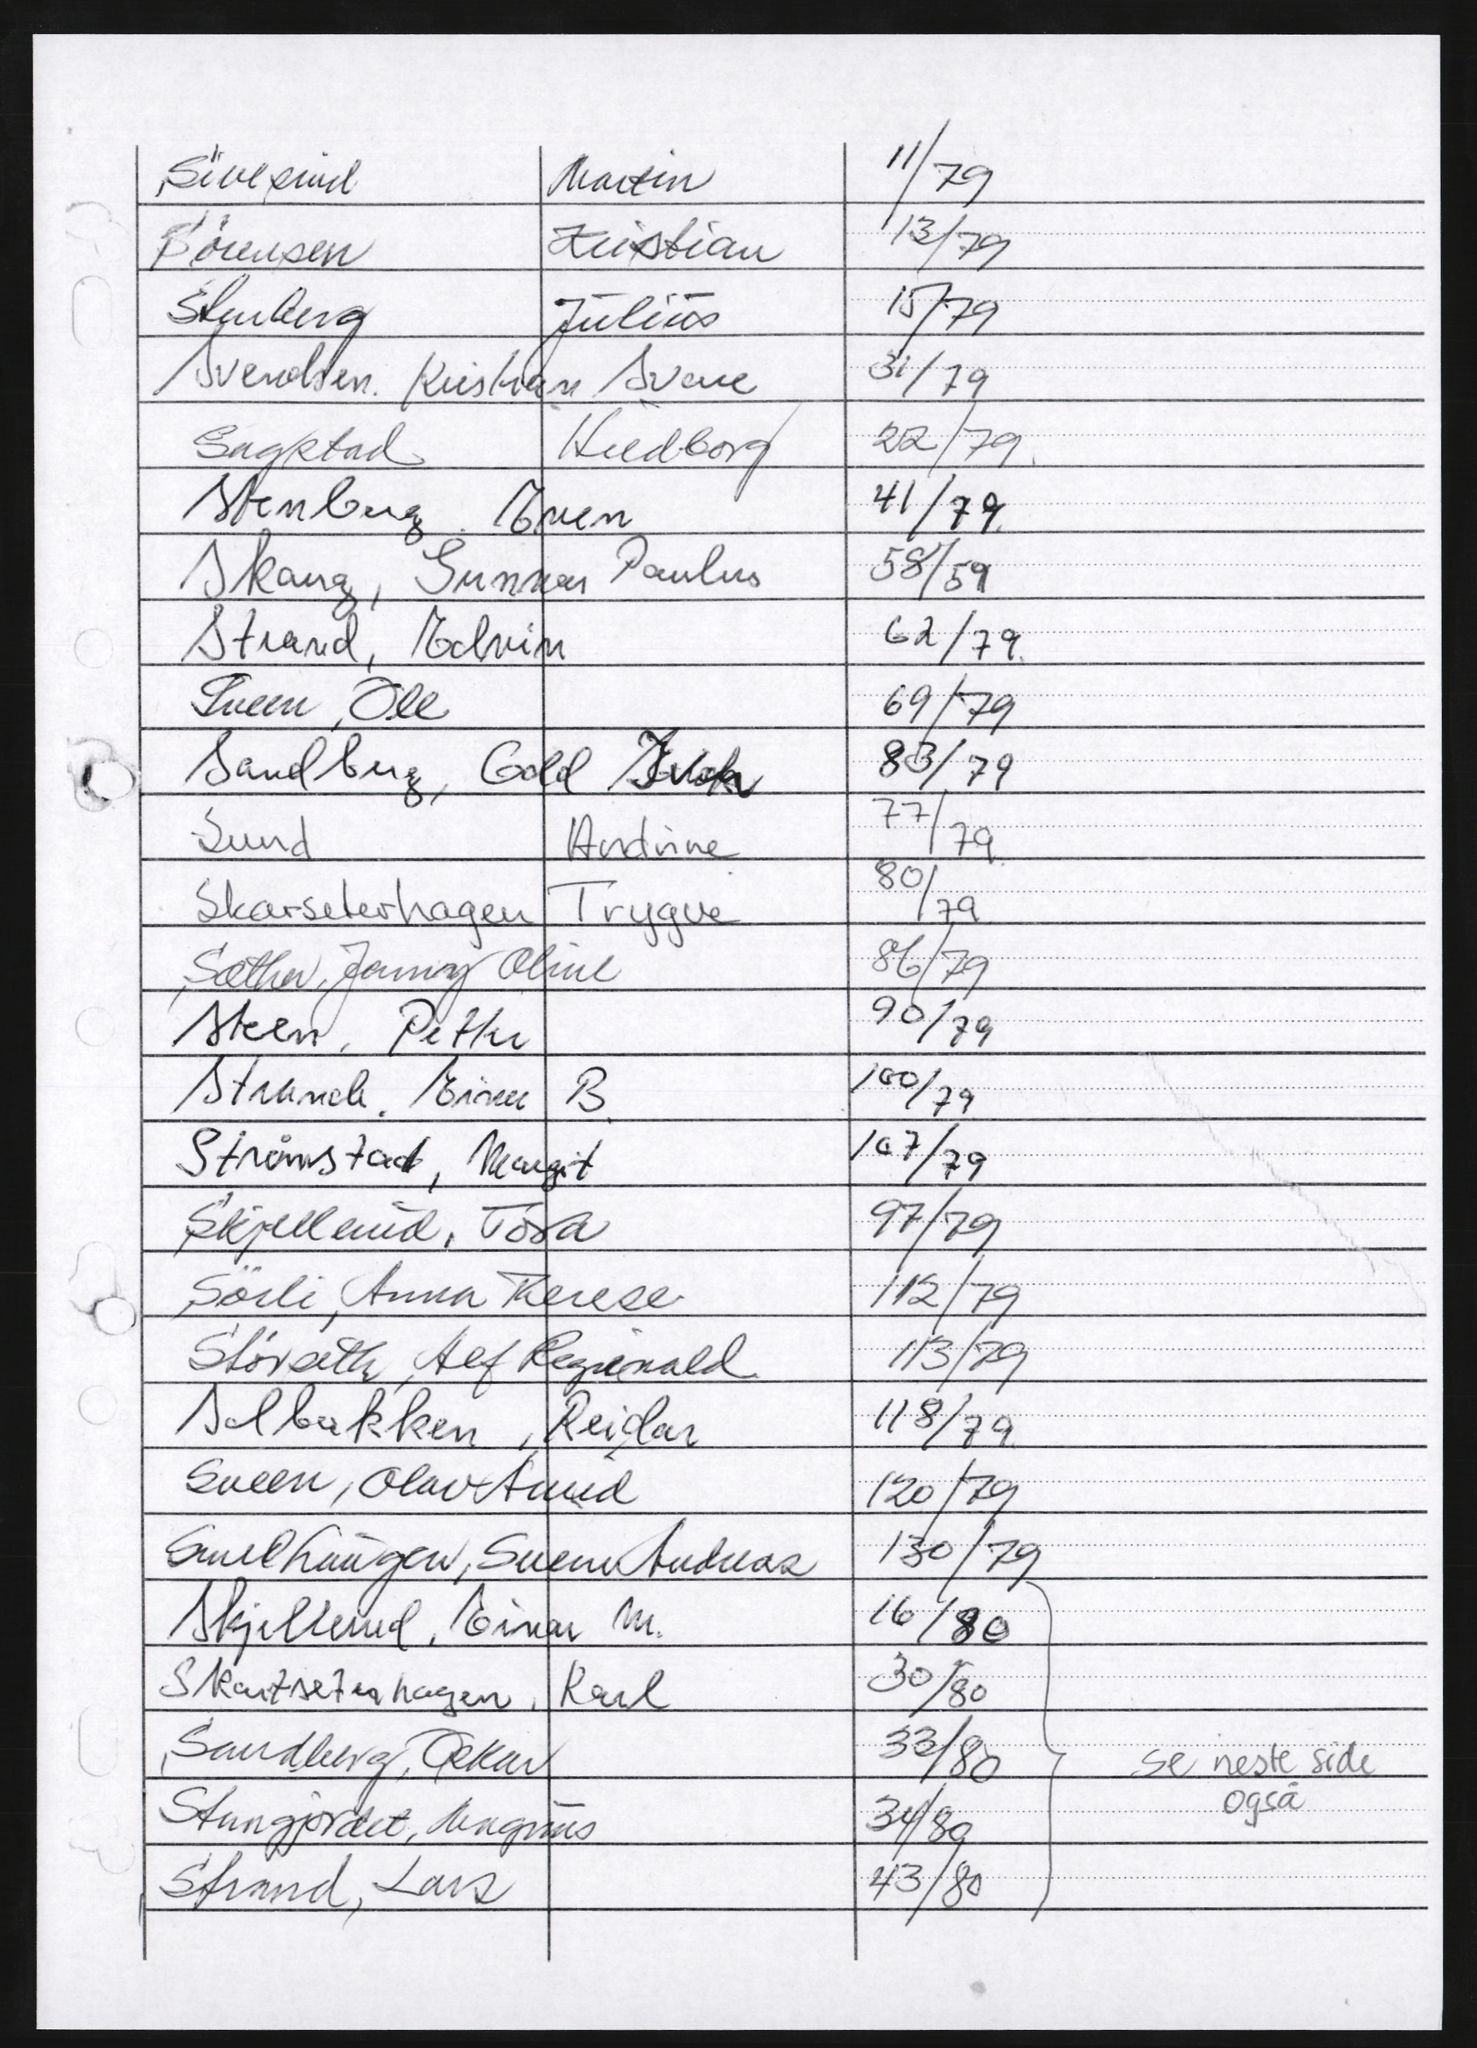 Sivesind Martin 11/79
Sörensen Kristian 13/79
Stenberg Julius 15/79
Svendsen. Kristian Svare 31/79
Sagstad Hiedborg 22/79.
Stenberg. Even 41/79.
Skaug, Gunnar Paulus 58/59
Strand, Edvin 62/79.
Sveen, Ole 69/79
Sandberg, Gold 83/79
Sund Andrine 77/79.
Skarseterhagen Trygve 80/79
Sæther, Jenny Oline 86/79
Steen, Petter 90/79
Strande. Einar B. 100/79
Strømstad, Margit 107/79
Skjellerud, Tora 97/79
Sörli, Anna Therese 112/79
Störseth, Alf Reginald 113/79
Solbakken, Reidar 118/79.
Sveen, Olav Amud 120/79
Smelhaugen, Svenn Andreas 130/79
Skjellerud, Einar M. 16/80
Skartseterhagen, Karl 30/80
Sandberg, Oskar 33/80
Stengjordet, Magnus 34/80
Strand, Lars 43/80
se neste side
også